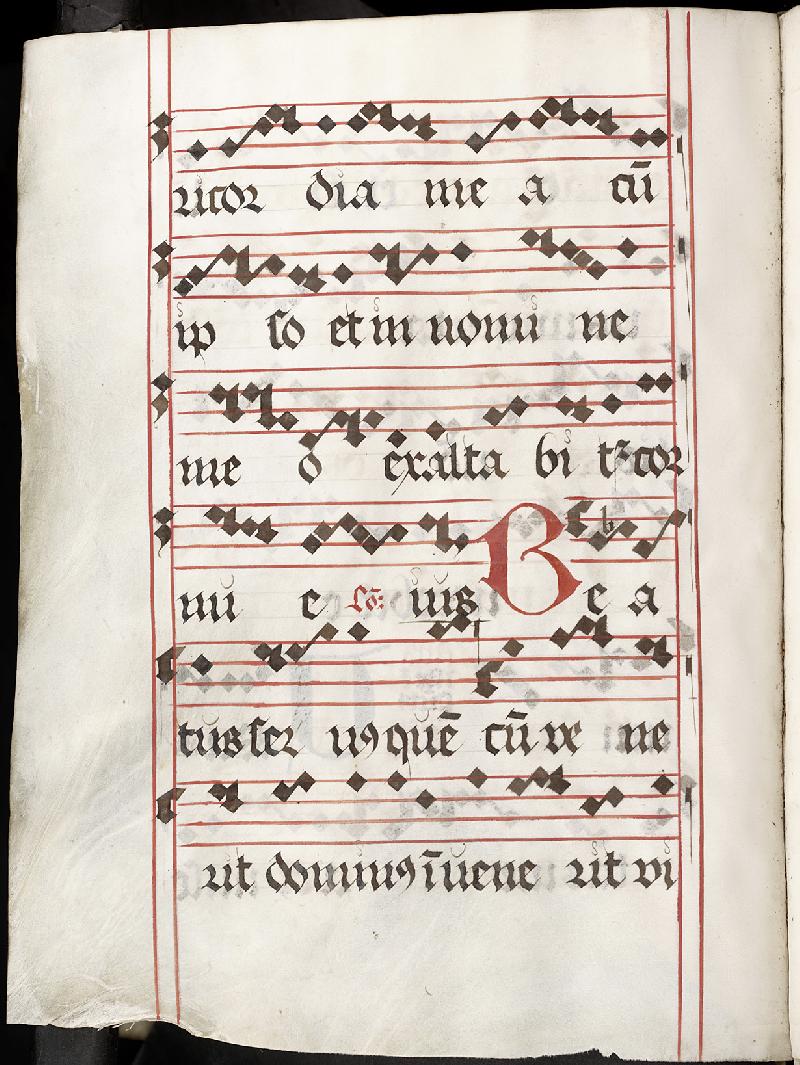 ricor dia me a cū
ip so et in nomi ne
me o exalta bi tr cor
nu e Cō: ius B e a
tus ser uꝰ quē cū ve ne
rit dominꝰ īuene rit vi